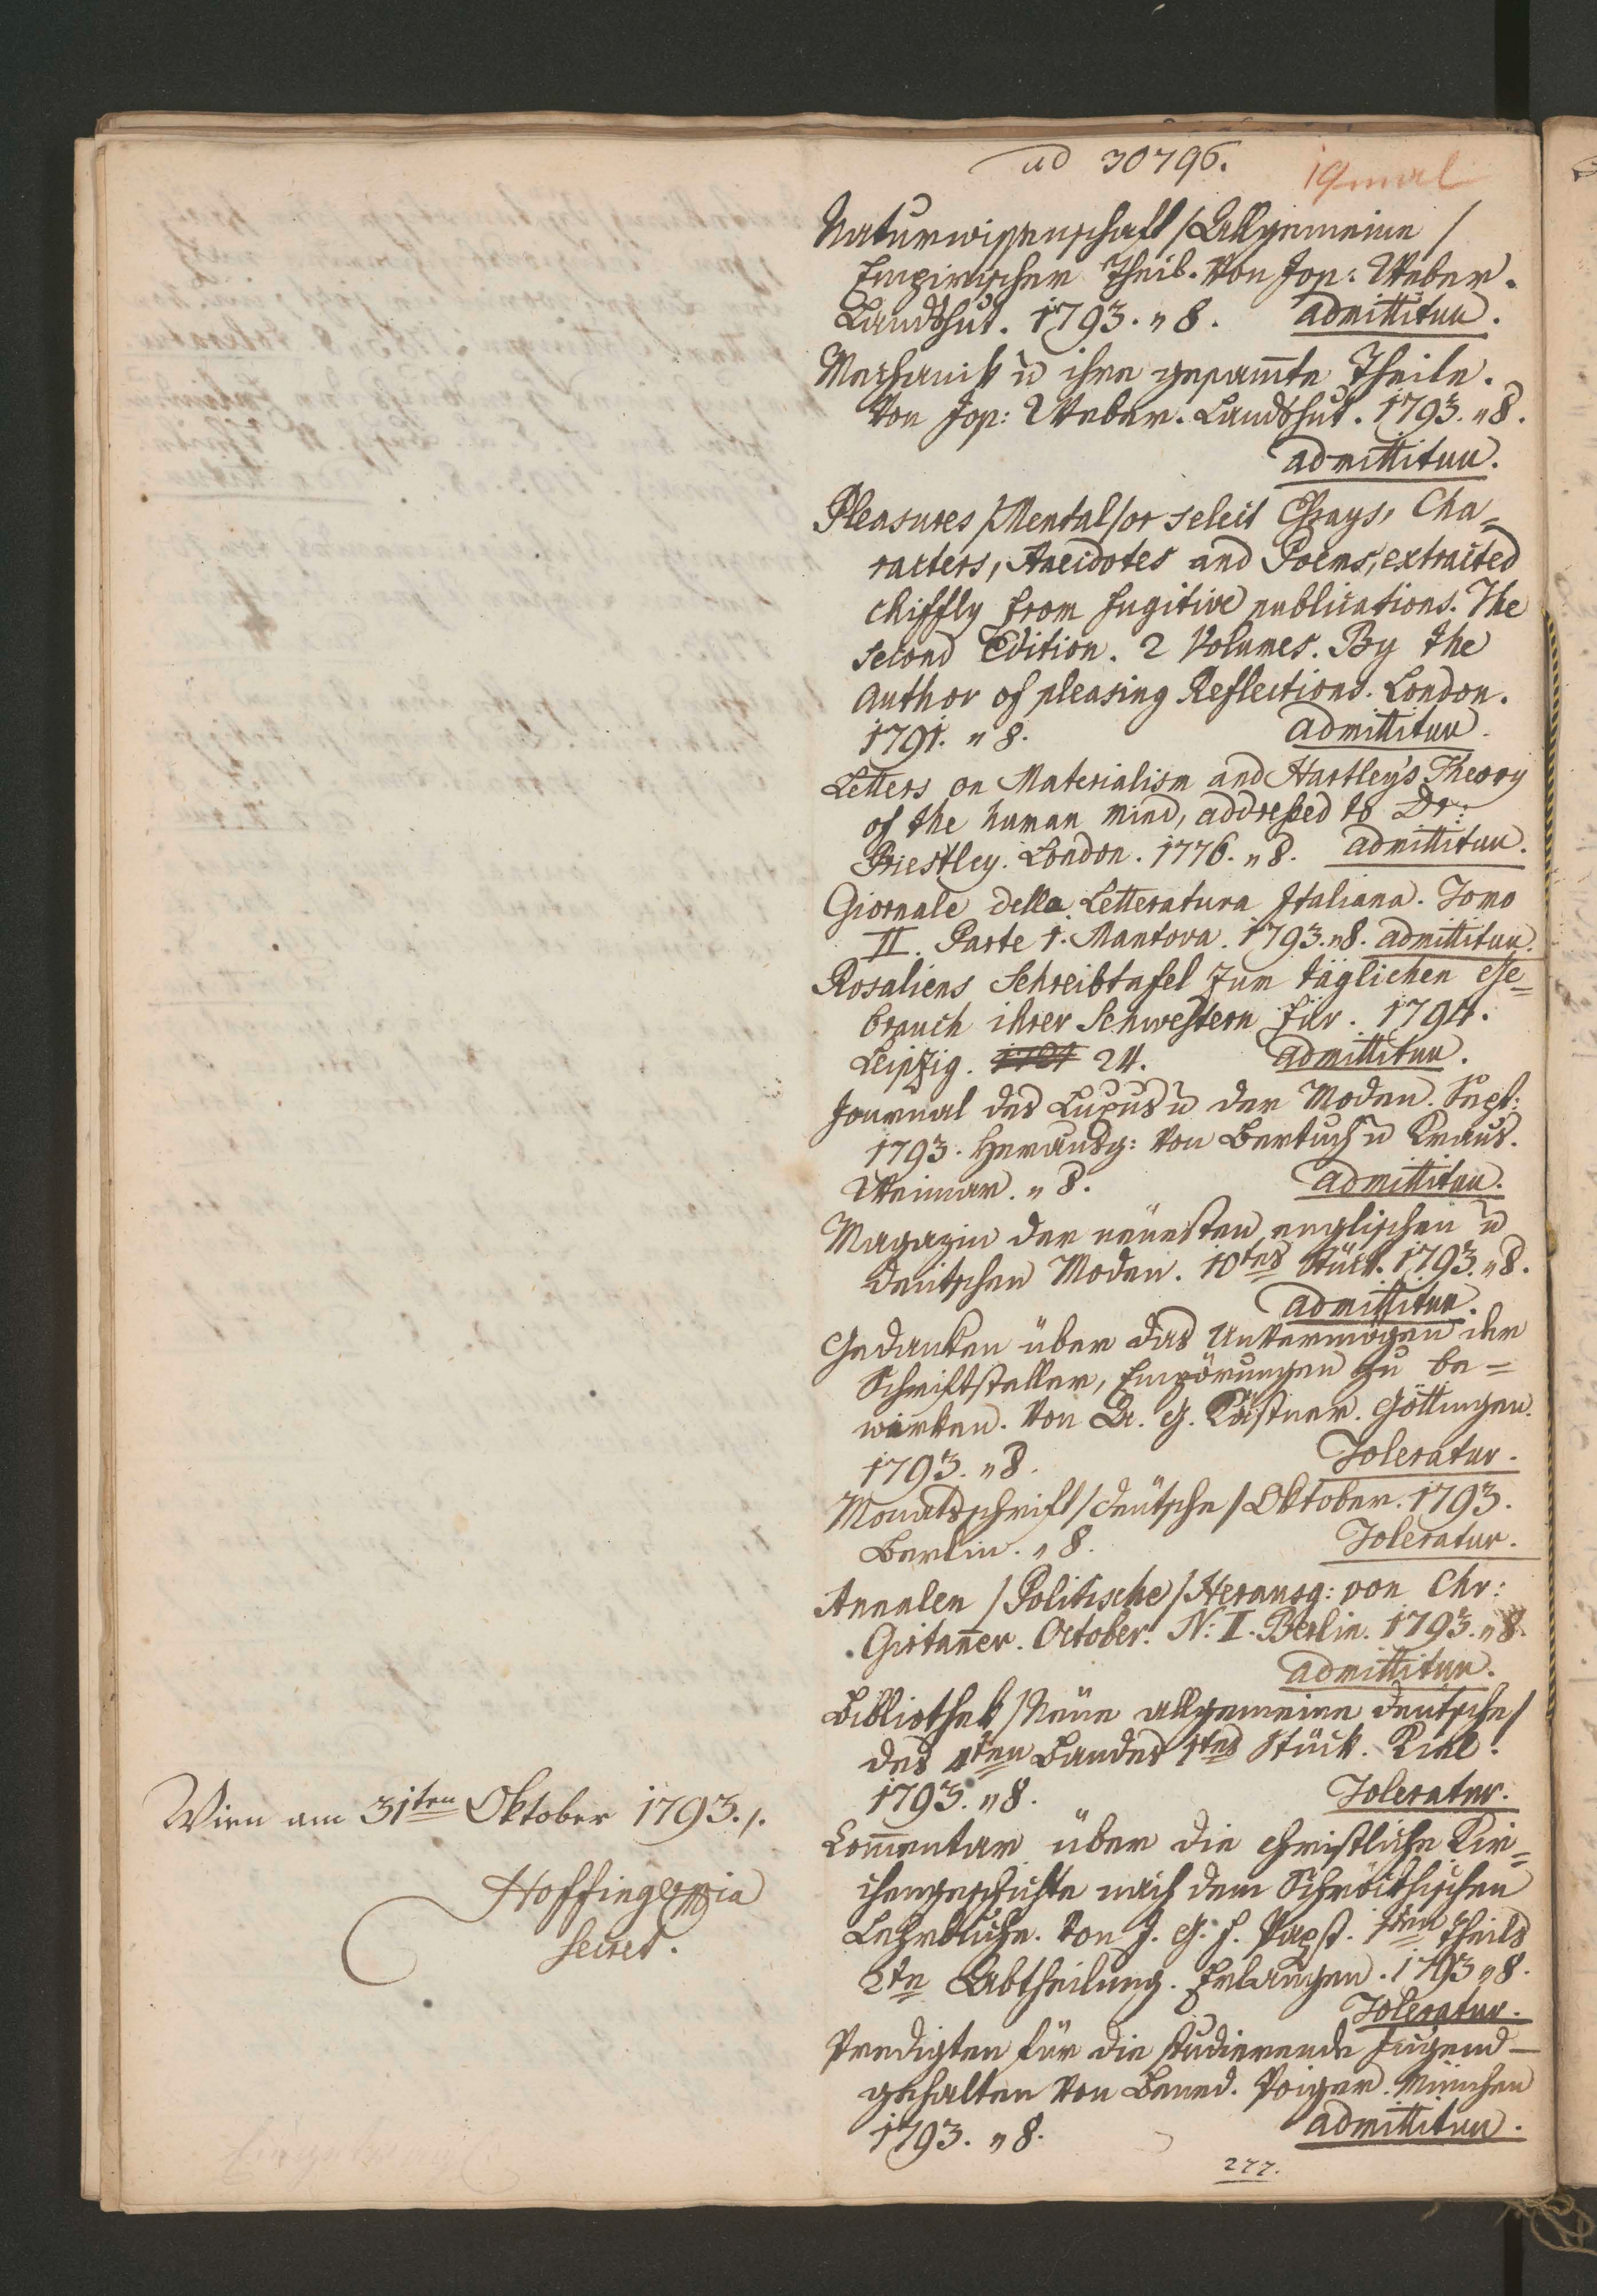 ad 30796.
19mal
Naturwissenschaft /Allgemeine/
Empirischer Theil. Von Jos: Weber.
Landshut. 1793. „ 8. admittitur.
Mechanik u ihre gesam̄te Theile.
Von Jos: Weber. Landshut. 1793. „ 8.
admittitur.
Pleasures /Mental/ or select Essays, Cha=
racters, Anecdotes and Poems, extracted
chiffly from fugitive publications. The
second Edition. 2 Volumes. By the
author of pleasing Reflections. London.
1791. „ 8. admittitur.
Letters on Materialism and Hartley's Theory
of the human mind, addressed to Dr:
Priestley. London. 1776. „ 8. admittitur.
Giornale della Letteratura Italiana. Tomo
II. Parte 1. Mantova. 1793. „ 8. admittitur.
Rosaliens Schreibtafel zum täglichen Ge=
brauch ihrer Schwestern für. 1794.
Leipzig. 1794 24. admittitur.
Journal des Luxus u der Moden. Sept:
1793. Herausg: von Bertuch u Kraus.
Weimar. „ 8. admittitur.
Magazin der neuesten englischen u
deutschen Moden. 10tes Stück. 1793. „ 8.
admittitur.
Gedanken über das Unvermögen der
Schriftsteller, Empörungen zu be=
wirken. Von A. G. Kästner. Göttingen.
1793. „ 8. Toleratur.
Monatsschrift /deutsche/ Oktober. 1793.
Berlin. „ 8. Toleratur.
Annalen /Politische/ Herausg: von Chr:
Girtan̄er. October. N: I. Berlin. 1793. „ 8.
admittitur.
Bibliothek /Neue allgemeine deutsche/
des 4ten Bandes 1tes Stück. Kiel.
1793. „ 8. Toleratur.
Com̄entar über die christliche Kir=
chengeschichte nach dem Schröckhischen
Lehrbuche. Von J. G. F. Papst. 1ten Theils
2te Abtheilung. Erlangen. 1793 „ 8.
Toleratur.
Predigten für die studierende Jugend
gehalten von Bened. Poiger. München
1793. „ 8. admittitur.
277.
Wien am 31ten Oktober 1793./.
Hoffinger mpia
Secret.